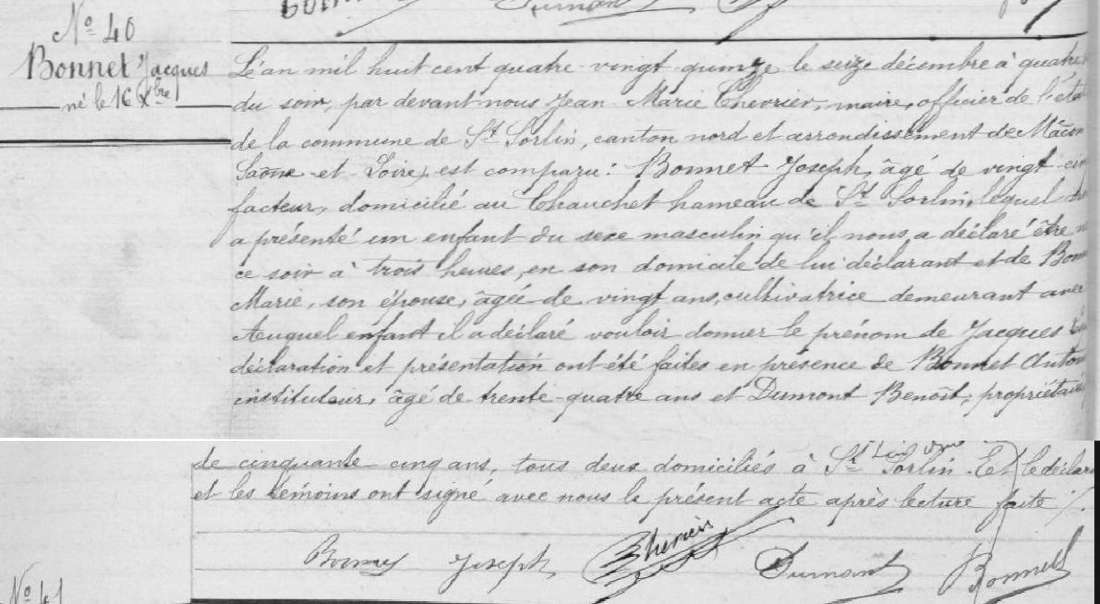 Nº 40
Bonnet Jacques
né le 16 Xbre
L'an mil huit cent quatre-vingt quinze le seize décembre à quatre
du soir, par devant nous Jean-Marie Chevrier, maire, officier de l'éta
de la commune de St Sorlin, canton nord et arrondissement de Mâcon
Saône-et-Loire, est comparu: Bonnet Joseph, âgé de vingt-cin
facteur, domicilié au Chauchet hameau de St Sorlin, lequel
a présenté un enfant du sexe masculin qu'il nous a déclaré être n
ce soir à trois heures, en son domicile de lui déclarant et de Bonn
Marie, son épouse, âgée de vingt ans, cultivatrice demeurant avec
Auquel enfant il a déclaré vouloir donner le prénom de Jacques
déclaration et présentation ont été faites en présence de Bonnet Anton
instituteur, âgé de trente-quatre ans et Dumont Benoît, propriétaire
de cinquante cinq ans, tous deux domiciliés à St Sorlin. Et le déclar
et les témoins ont signé avec nous le présent acte après lecture faite ./.
Bonnet Joseph Chevrier Dumont Bonnet
Nº 41